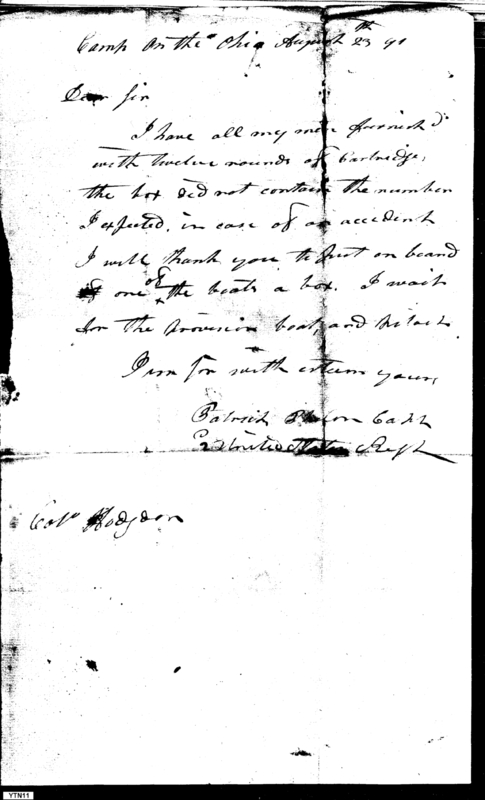 Camp On the Ohio August 23th 91
Dear Sir
I have all my men furnish'd
with twelve rounds of Cartridge,
the box did not contain the number
I expected, in case of an accident
I will thank you to put on board
one of the boats a box. I wait
for the provision boat, and
I am Sir with esteem yours,
Patrick Phelon Capt
2 United States Regt
Colo Hodgdon
YTN11